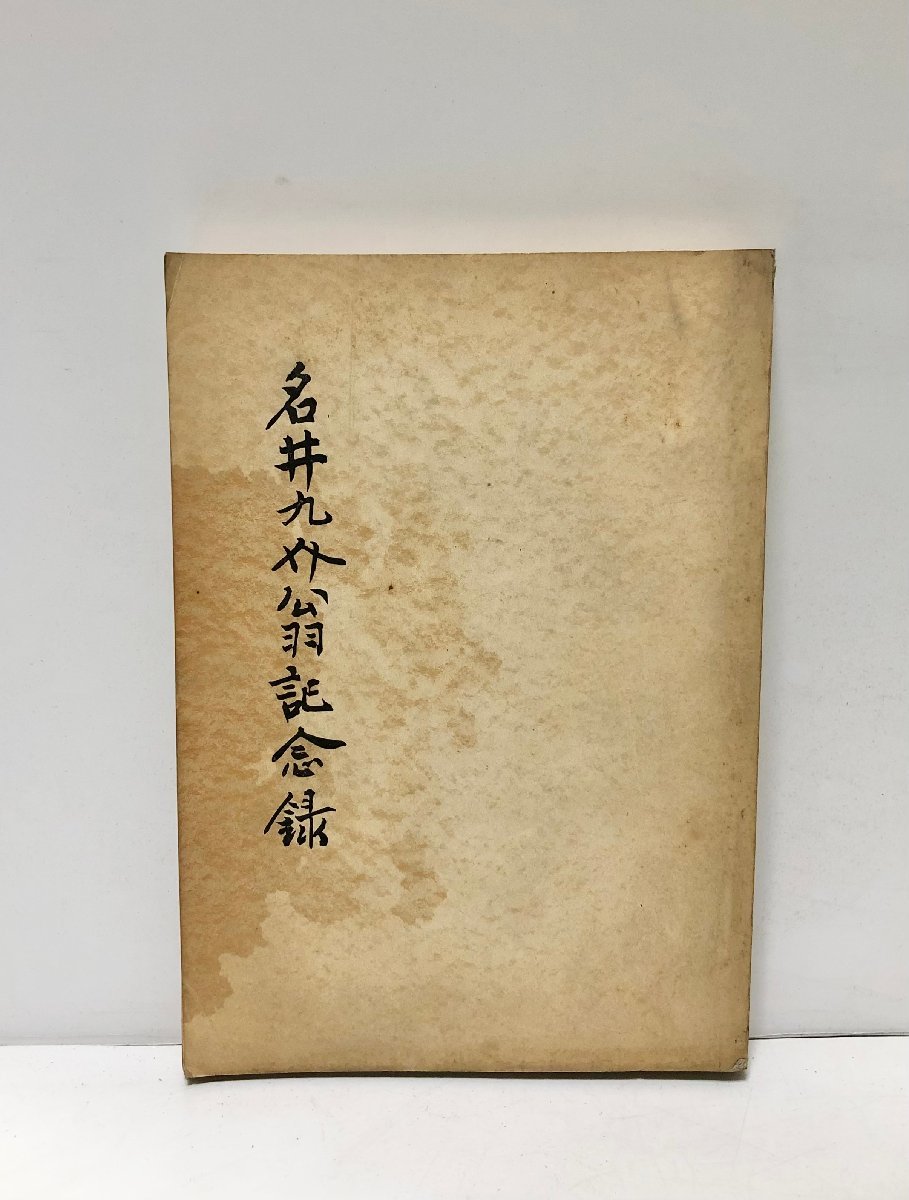 名井九介翁記念録